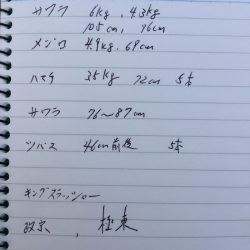 サワラ 6kg, 4.3kg
105cm, 96cm
メジロ 4.9kg, 69cm
ハマチ 3.5kg 72cm 5本
サワラ 76〜87cm
ツバス 46cm前後 5本
キングスラッシャー
政宗, 極東